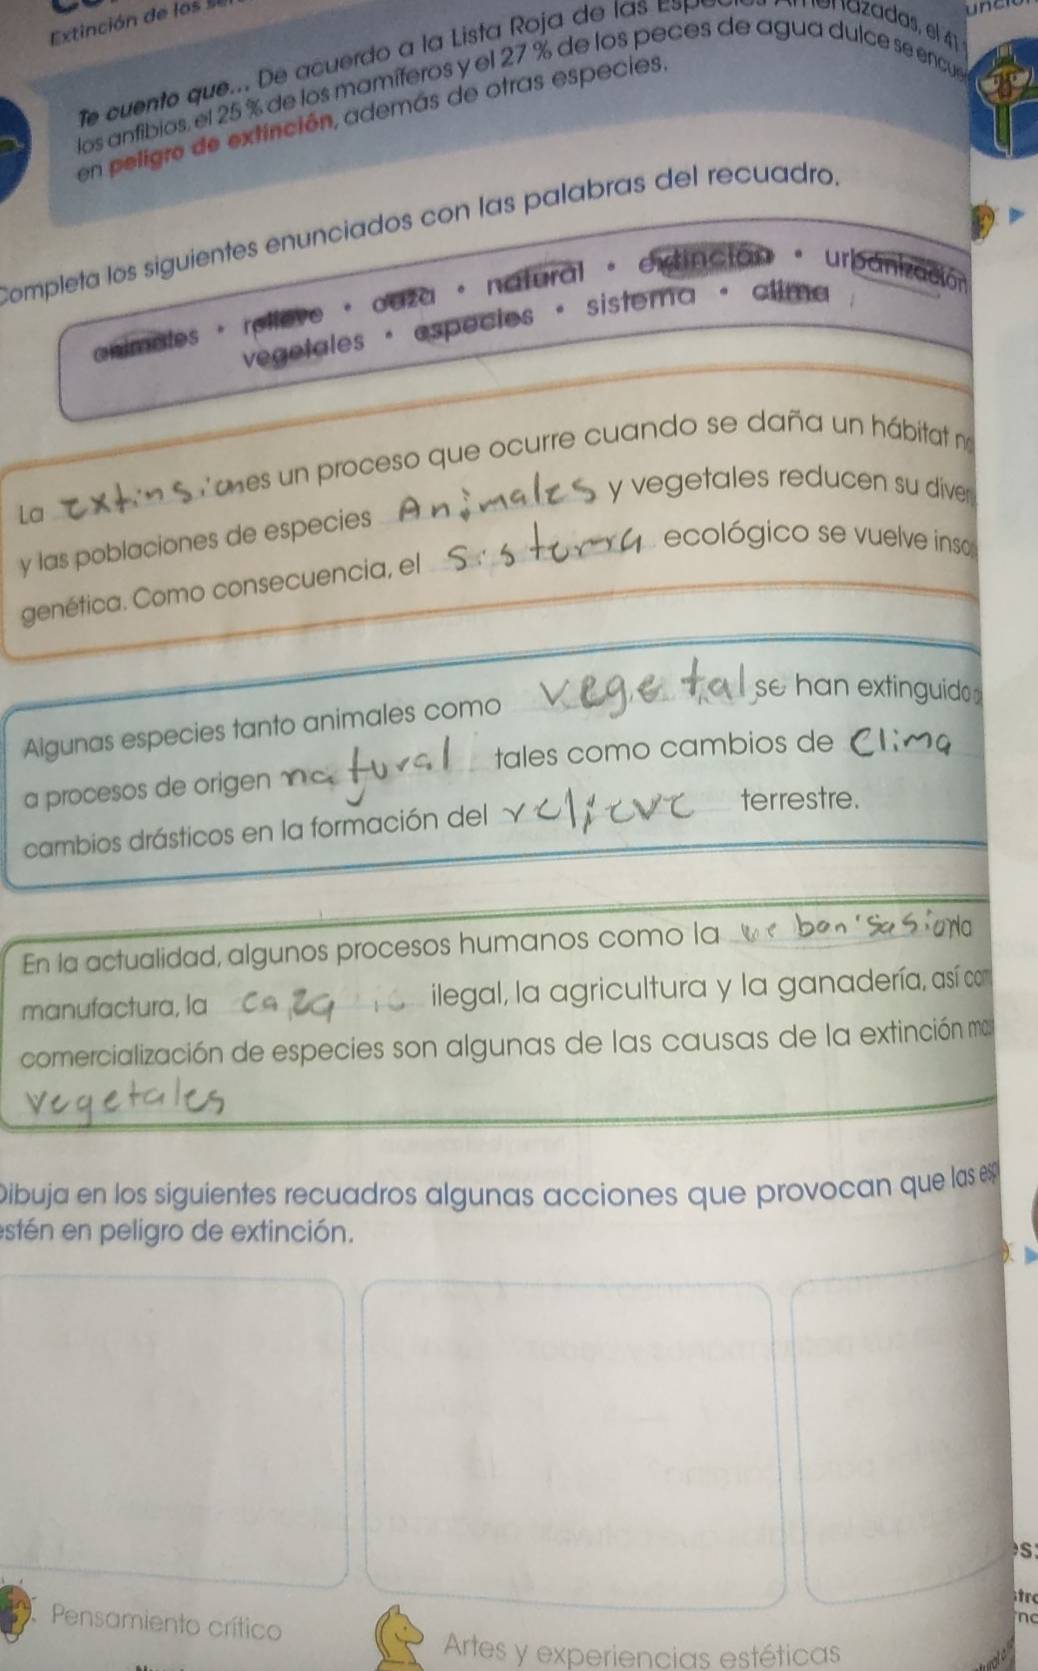 Extinción de los
Te cuento que... De acuerdo a la Lista Roja de las
los anfibios, el 25 % de los mamíferos y el 27 % de los peces de agua dulce se
en peligro de extinción, además de otras especies.
Completa los siguientes enunciados con las palabras del recuadro.
animales • relieve • caza • natural • extinción • urbanización
vegetales • especies • sistema • clima
La extinsiones un proceso que ocurre cuando se daña un hábitat
y las poblaciones de especies Animales y vegetales reducen su
genética. Como consecuencia, el sistema ecológico se vuelve
Algunas especies tanto animales como vegetal se han extinguido
a procesos de origen natural tales como cambios de Clima
cambios drásticos en la formación del relieve terrestre.
En la actualidad, algunos procesos humanos como la
manufactura, la caza ilegal, la agricultura y la ganadería, así
comercialización de especies son algunas de las causas de la extinción
vegetales
Dibuja en los siguientes recuadros algunas acciones que provocan que las
estén en peligro de extinción.
Pensamiento crítico
Artes y experiencias estéticas